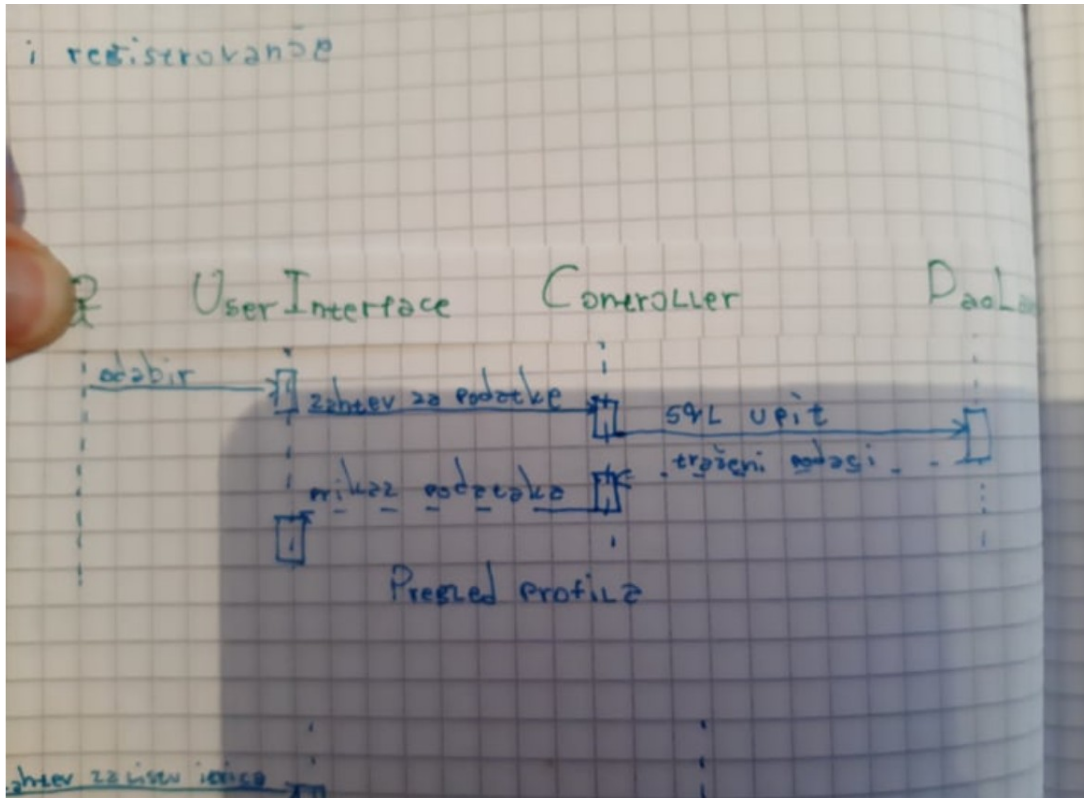 i registrovanje
UserInterface Controller DaoLa
odabir
zahtev za podatke
SQL upit
traženi podaci
prikaz podataka
Pregled profila
zahtev za